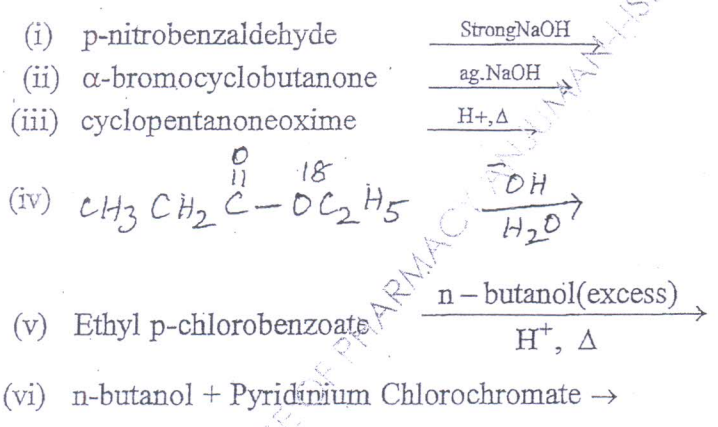 (i) p-nitrobenzaldehyde StrongNaOH
(ii) α-bromocyclobutanone ag.NaOH
(iii) cyclopentanoneoxime H+,Δ
O
(iv) CH3 CH2 C – 18OC2H5 ⁻OH
H2O
(v) Ethyl p-chlorobenzoate n – butanol(excess)
H⁺, Δ
(vi) n-butanol + Pyridinium Chlorochromate →
OF PHARMACY